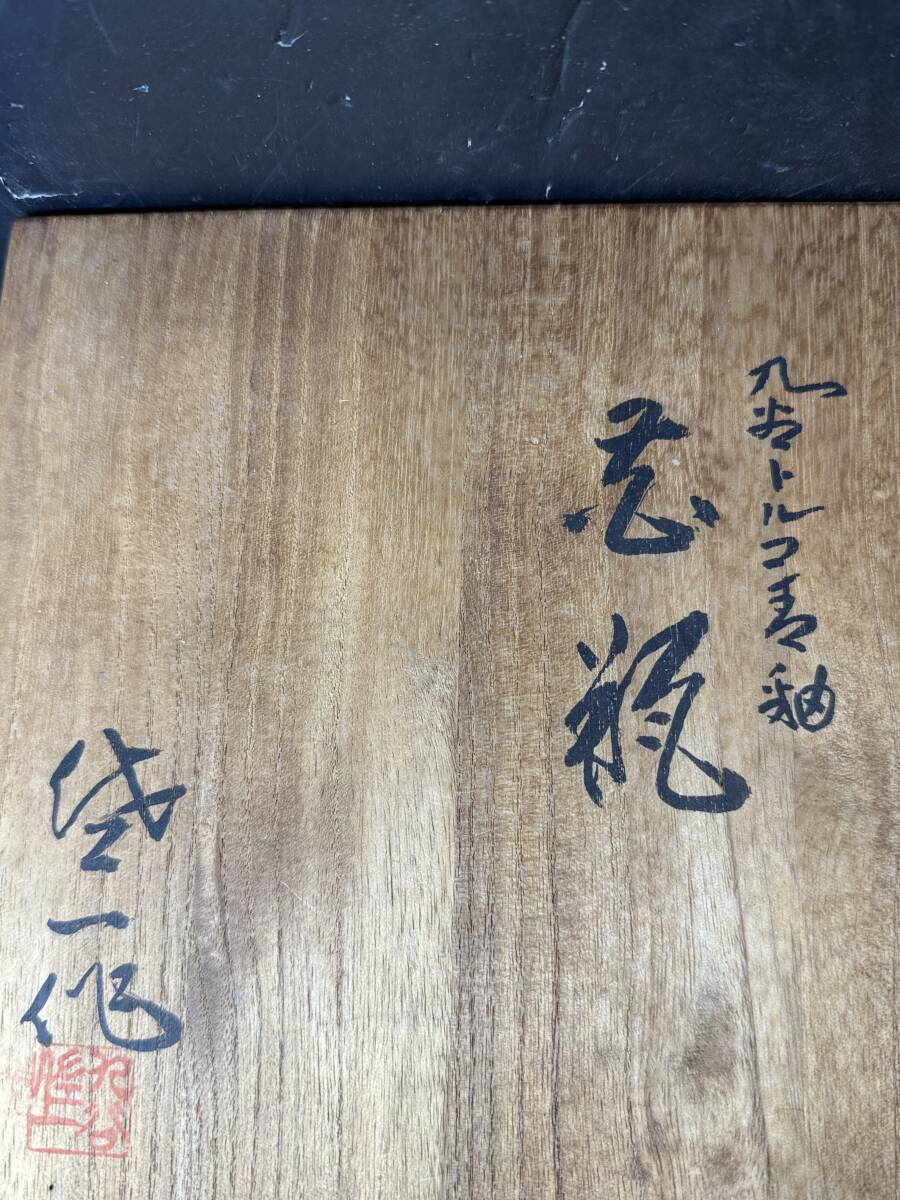 九谷トルコ青釉
花瓶
岱一作